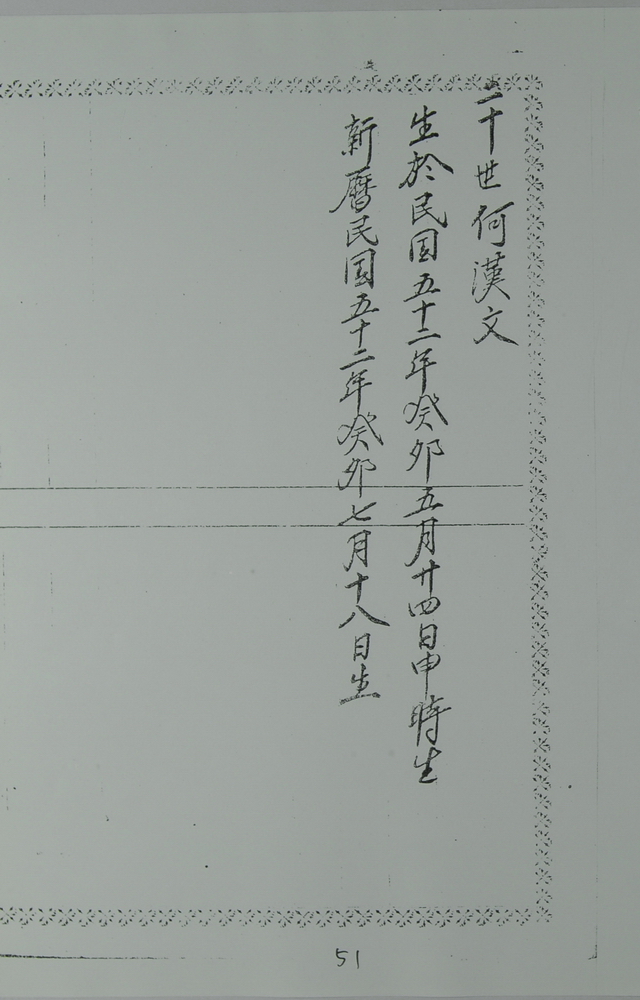 二十世何漢文
生於民国五十二年癸卯五月廿四日申時生
新曆民国五十二年癸卯七月十八日生
51